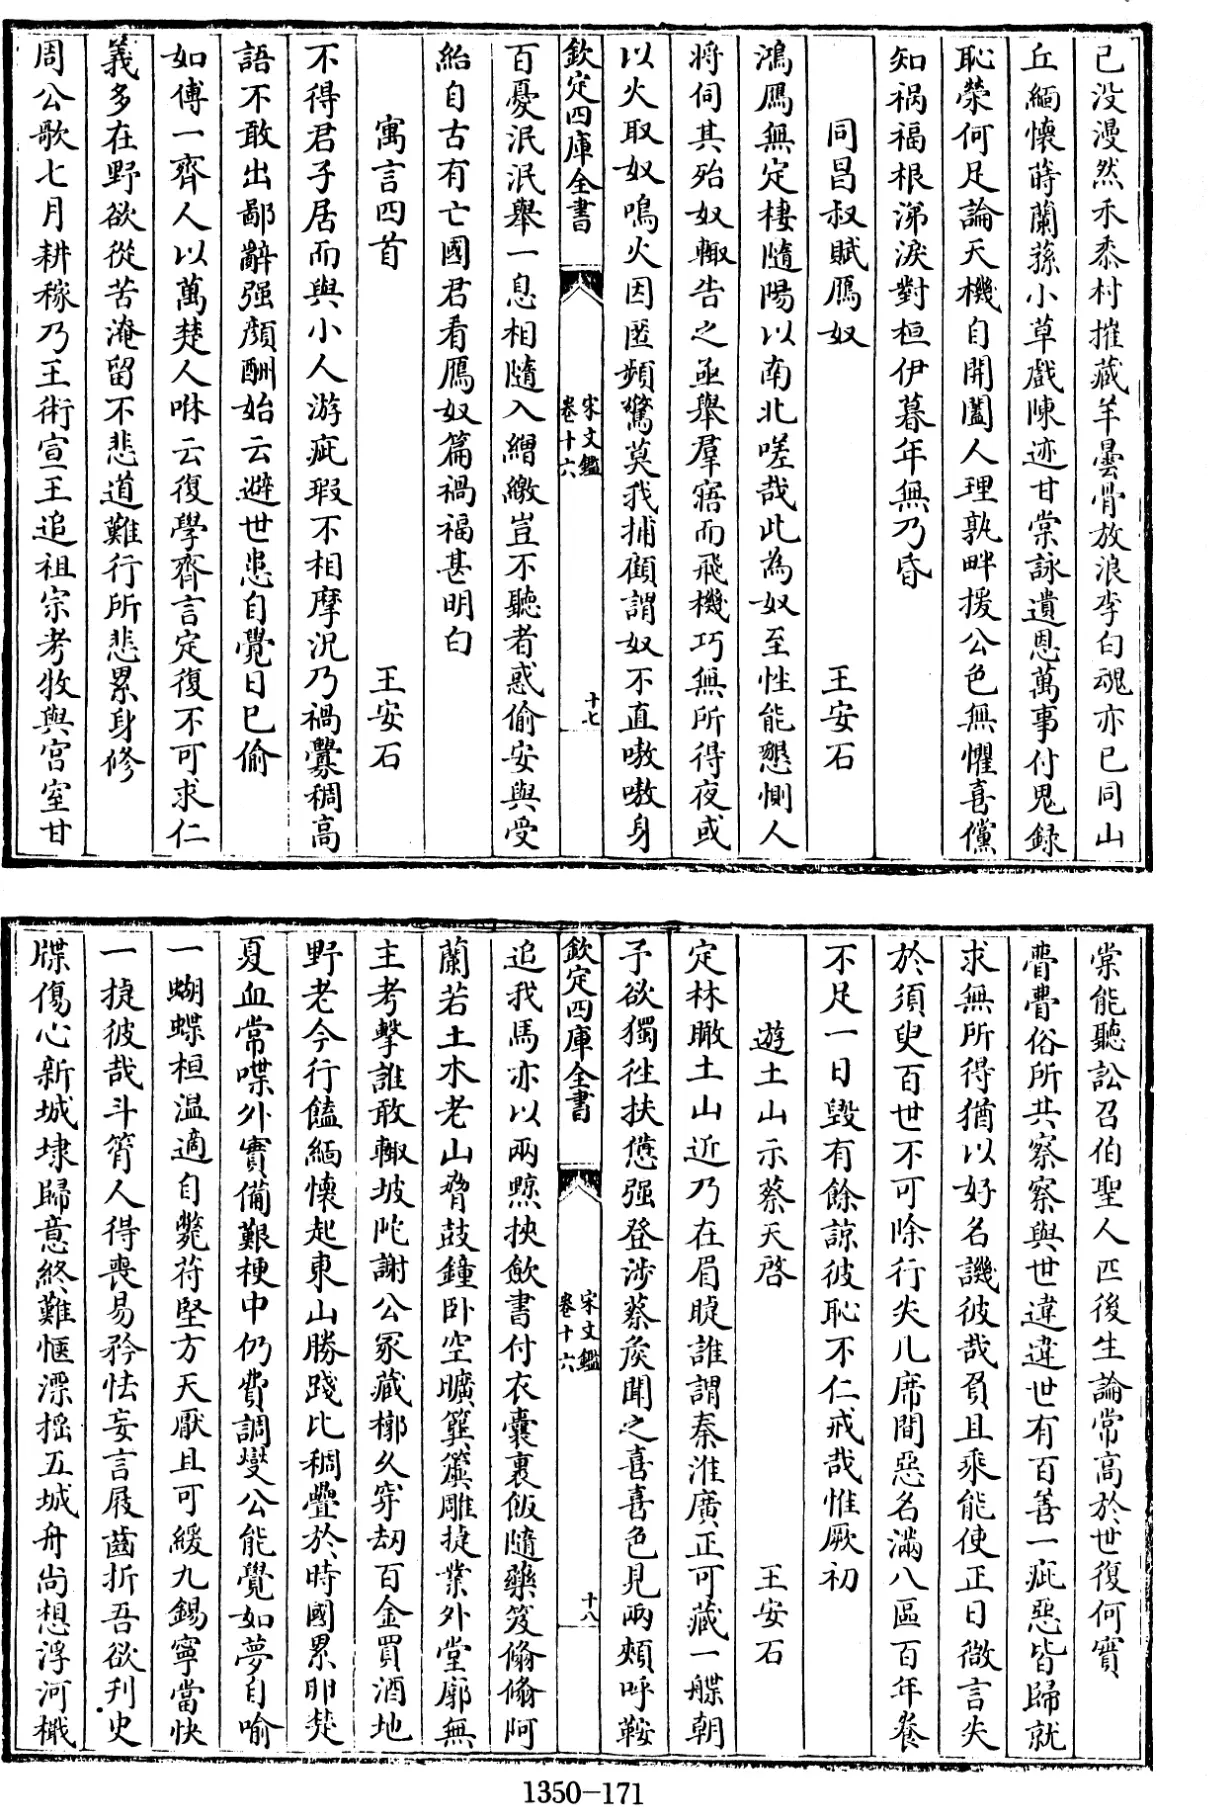 已没漫然禾黍村摧藏羊曇骨放浪李白魂亦已同山
丘緬懷蒔蘭蓀小草戲陳迹甘棠詠遺恩萬事付鬼録
恥榮何足論天機自開闔人理孰畔援公色無懼喜儻
知禍福根涕淚對桓伊暮年無乃昏
同昌叔賦鴈奴
王安石
鴻鴈無定棲隨陽以南北嗟哉此為奴至性能懇惻人
將伺其殆奴輙告之亟舉羣寤而飛機巧無所得夜或
以火取奴鳴火因匿頻驚莫我捕顧謂奴不直嗷嗷身
欽定四庫全書
宋文鑑
卷十六
十七
百憂泯泯舉一息相隨入繒繳豈不聽者惑偷安與受
紿自古有亡國君看鴈奴篇禍福甚明白
寓言四首
王安石
不得君子居而與小人游疵瑕不相摩況乃禍釁稠高
語不敢出鄙辭强顔酬始云避世患自覺日已偷
如傅一齊人以萬楚人咻云復學齊言定復不可求仁
義多在野欲從苦淹留不悲道難行所悲累身修
周公歌七月耕稼乃王術宣王追祖宗考牧與宮室甘
棠能聽訟召伯聖人匹後生論常高於世復何實
瞢瞢俗所共察察與世違違世有百善一疵惡皆歸就
求無所得猶以好名譏彼哉負且乘能使正日微言失
於須臾百世不可除行失几席間惡名滿八區百年養
不足一日毀有餘諒彼恥不仁戒哉惟厥初
遊土山示蔡天啓
王安石
定林瞰土山近乃在眉睫誰謂秦淮廣正可藏一艓朝
予欲獨徃扶憊强登涉蔡矦聞之喜喜色見兩頰呼鞍
欽定四庫全書
宋文鑑
卷十六
十八
追我馬亦以兩黥挾歛書付衣囊裹飯隨藥笈翛翛阿
蘭若土木老山脅鼓鐘卧空曠簨簴雕捷業外堂廓無
主考擊誰敢輙坡陁謝公冢藏槨久穿刼百金買酒地
野老今行饁緬懷起東山勝踐比稠疊於時國累卵楚
夏血常喋外實備艱梗中仍費調燮公能覺如夢自喻
一蝴蝶桓温適自斃苻堅方天厭且可緩九錫寧當快
一捷彼哉斗筲人得喪易矜怯妄言屐齒折吾欲刋史
牒傷心新城埭歸意終難愜漂揺五城舟尚想浮河檝
1350-171